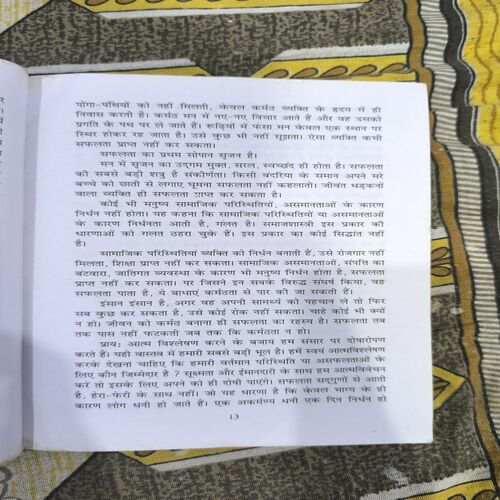 पोंगा-पंथियों को नहीं मिलती, केवल कर्मठ व्यक्ति के हृदय में ही
निवास करती है। कर्मठ मन में नए-नए विचार आते हैं और वह उसको
प्रगति के पथ पर ले जाते हैं। रूढ़ियों में फंसा मन केवल एक स्थान पर
स्थिर होकर रह जाता है। उसे कुछ भी नहीं सूझता। ऐसा व्यक्ति कभी
सफलता प्राप्त नहीं कर सकता।
सफलता का प्रथम सोपान सृजन है।
मन में सृजन का उद्गम मुक्त, सरल, स्वच्छंद ही होता है। सफलता
की सबसे बड़ी शत्रु है संकीर्णता। किसी बंदरिया के समान अपने मरे
बच्चे को छाती से लगाए घूमना सफलता नहीं कहलाती। जीवंत धड़कनों
वाला व्यक्ति ही सफलता प्राप्त कर सकता है।
कोई भी मनुष्य सामाजिक परिस्थितियों, असमानताओं के कारण
निर्धन नहीं होता। यह कहना कि सामाजिक परिस्थितियों या असमानताओं
के कारण निर्धनता आती है, गलत है। समाजशास्त्री इस प्रकार की
धारणाओं को गलत ठहरा चुके हैं। इस प्रकार का कोई सिद्धांत नहीं
है।
सामाजिक परिस्थितियां व्यक्ति को निर्धन बनाती हैं, उसे रोजगार नहीं
मिलता, शिक्षा प्राप्त नहीं कर सकता। सामाजिक असमानताओं, संपत्ति का
बंटवारा, जातिगत व्यवस्था के कारण भी मनुष्य निर्धन होता है, सफलता
प्राप्त नहीं कर सकता। पर जिसने इन सबके विरुद्ध संघर्ष किया, वह
सफलता पाता है, ये बाधाएं कर्मठता से पार की जा सकती हैं।
इंसान इंसान है, अगर वह अपनी सामर्थ्य को पहचान ले तो फिर
सब कुछ कर सकता है, उसे कोई रोक नहीं सकता। चाहे कोई भी क्यों
न हो। जीवन को कर्मठ बनाना ही सफलता का रहस्य है। सफलता तब
तक पास नहीं फटकती जब तक कि कर्मठता न हो।
प्राय: आत्म विश्लेषण करने के बजाय हम संसार पर दोषारोपण
करते हैं। यही वास्तव में हमारी सबसे बड़ी भूल है। हमें स्वयं आत्मविश्लेषण
करके देखना चाहिए कि हमारी वर्तमान परिस्थिति या असफलताओं के
लिए कौन जिम्मेदार है ? सूक्ष्मता और ईमानदारी के साथ हम आत्मविवेचन
करें तो इसके लिए अपने को ही दोषी पाएंगे। सफलता सद्गुणों से आती
है, हेरा-फेरी के साथ नहीं। जो यह धारणा है कि केवल भाग्य के ही
कारण लोग धनी हो जाते हैं। एक अकर्मण्य धनी एक दिन निर्धन हो
13